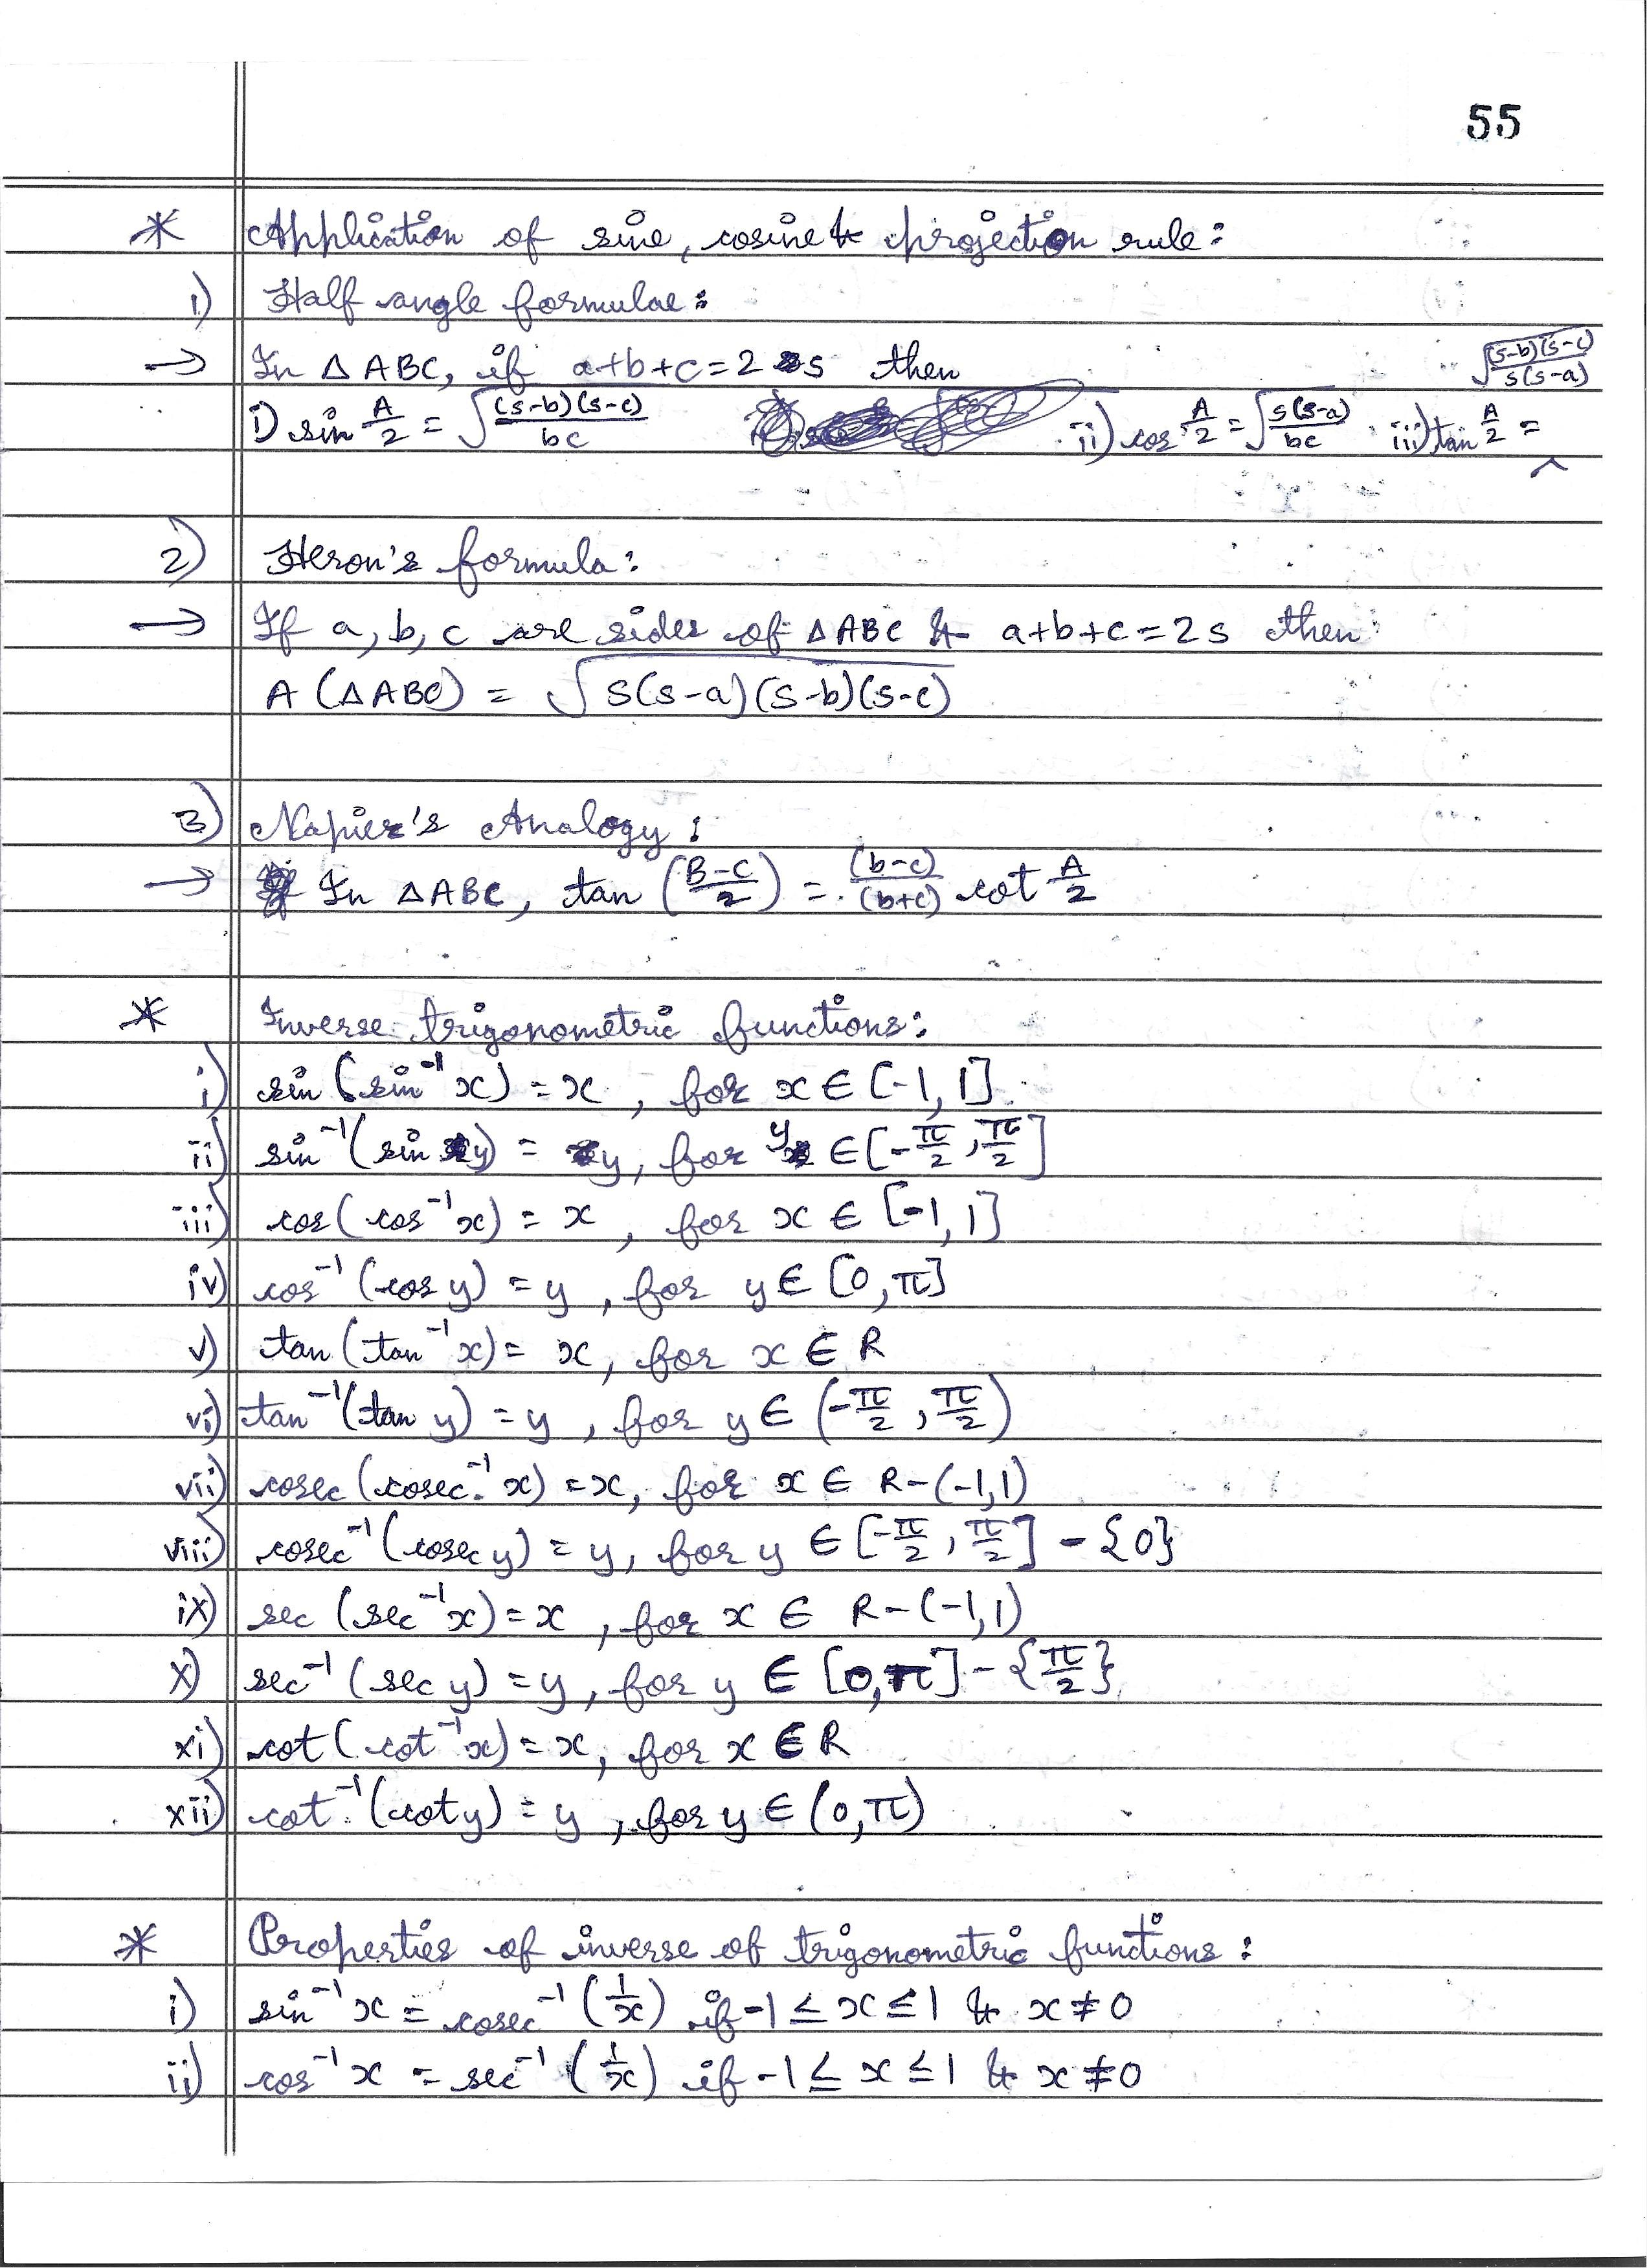 55
* Application of sine, cosine & projection rule:
1) Half angle formulae:
→ In △ABC, if a+b+c=2s then
i) sin A/2 = √((s-b)(s-c)/bc) ii) cos A/2 = √(s(s-a)/bc) iii) tan A/2 = √((s-b)(s-c)/s(s-a))
2) Heron's formula:
→ If a, b, c are sides of △ABC & a+b+c=2s then:
A (△ABC) = √(s(s-a)(s-b)(s-c))
3) Napier's Analogy:
→ In △ABC, tan ((B-C)/2) = (b-c)/(b+c) cot A/2
* Inverse trigonometric functions:
i) sin (sin⁻¹ x) = x, for x ∈ [-1, 1]
ii) sin⁻¹(sin y) = y, for y ∈ [-π/2, π/2]
iii) cos (cos⁻¹ x) = x, for x ∈ [-1, 1]
iv) cos⁻¹ (cos y) = y, for y ∈ [0, π]
v) tan (tan⁻¹ x) = x, for x ∈ R
vi) tan⁻¹(tan y) = y, for y ∈ (-π/2, π/2)
vii) cosec (cosec⁻¹ x) = x, for x ∈ R-(-1,1)
viii) cosec⁻¹ (cosec y) = y, for y ∈ [-π/2, π/2] - {0}
ix) sec (sec⁻¹ x) = x, for x ∈ R-(-1,1)
x) sec⁻¹ (sec y) = y, for y ∈ [0,π] - {π/2}
xi) cot (cot⁻¹ x) = x, for x ∈ R
xii) cot⁻¹ (cot y) = y, for y ∈ (0,π)
* Properties of inverse of trigonometric functions:
i) sin⁻¹ x = cosec⁻¹ (1/x) if -1 ≤ x ≤ 1 & x ≠ 0
ii) cos⁻¹ x = sec⁻¹ (1/x) if -1 ≤ x ≤ 1 & x ≠ 0